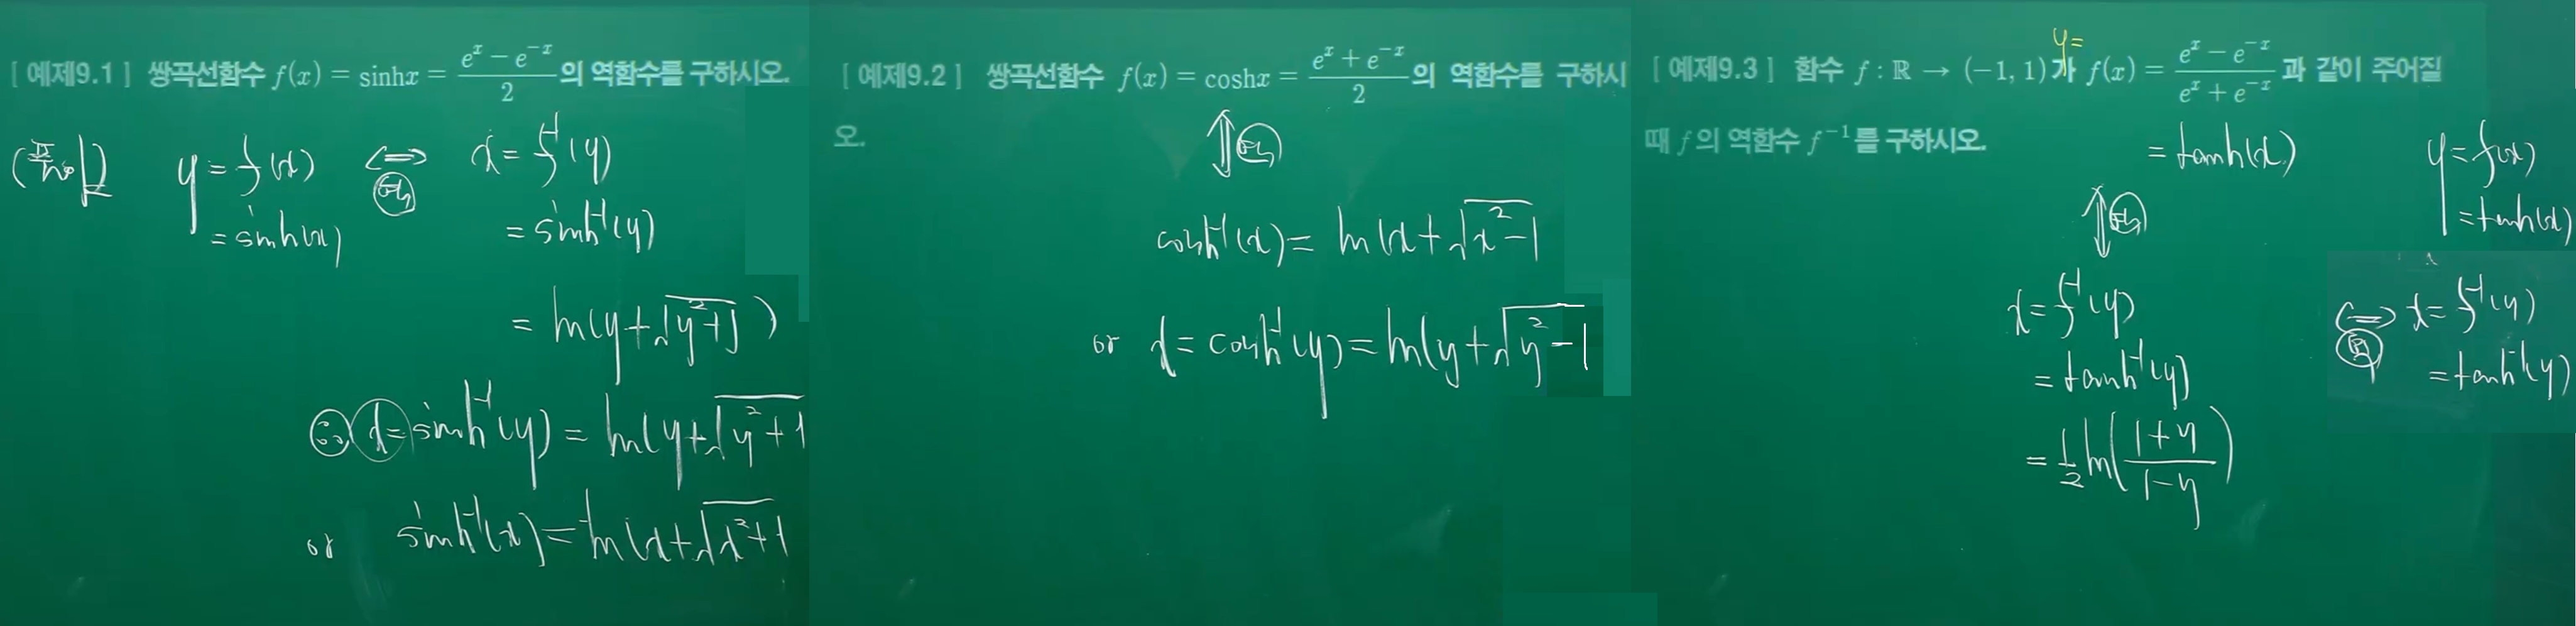 [ 예제9.1 ] 쌍곡선함수 f(x) = sinhx = (e^x − e^{−x})/2 의 역함수를 구하시오.
(풀이) y = f(x) ⟺ x = f^{-1}(y)
역
= sinh(x) = sinh^{-1}(y)
= ln(y+√(y²+1))
∴ x = sinh^{-1}(y) = ln(y+√(y²+1
or sinh^{-1}(x) = ln(x+√(x²+1
[ 예제9.2 ] 쌍곡선함수 f(x) = coshx = (e^x + e^{−x})/2 의 역함수를 구하시
오.
⇕ 역
cosh^{-1}(x) = ln(x+√(x²−1
or x = cosh^{-1}(y) = ln(y+√(y²−1
y=
[ 예제9.3 ] 함수 f : ℝ → (−1, 1)가 f(x) = (e^x − e^{−x})/(e^x + e^{−x}) 과 같이 주어질
때 f의 역함수 f^{−1}를 구하시오.
= tanh(x)
⇕ 역
x = f^{-1}(y)
= tanh^{-1}(y)
= 1/2 ln((1+y)/(1−y))
y = f(x)
= tanh(x)
⟺ x = f^{-1}(y)
역
= tanh^{-1}(y)